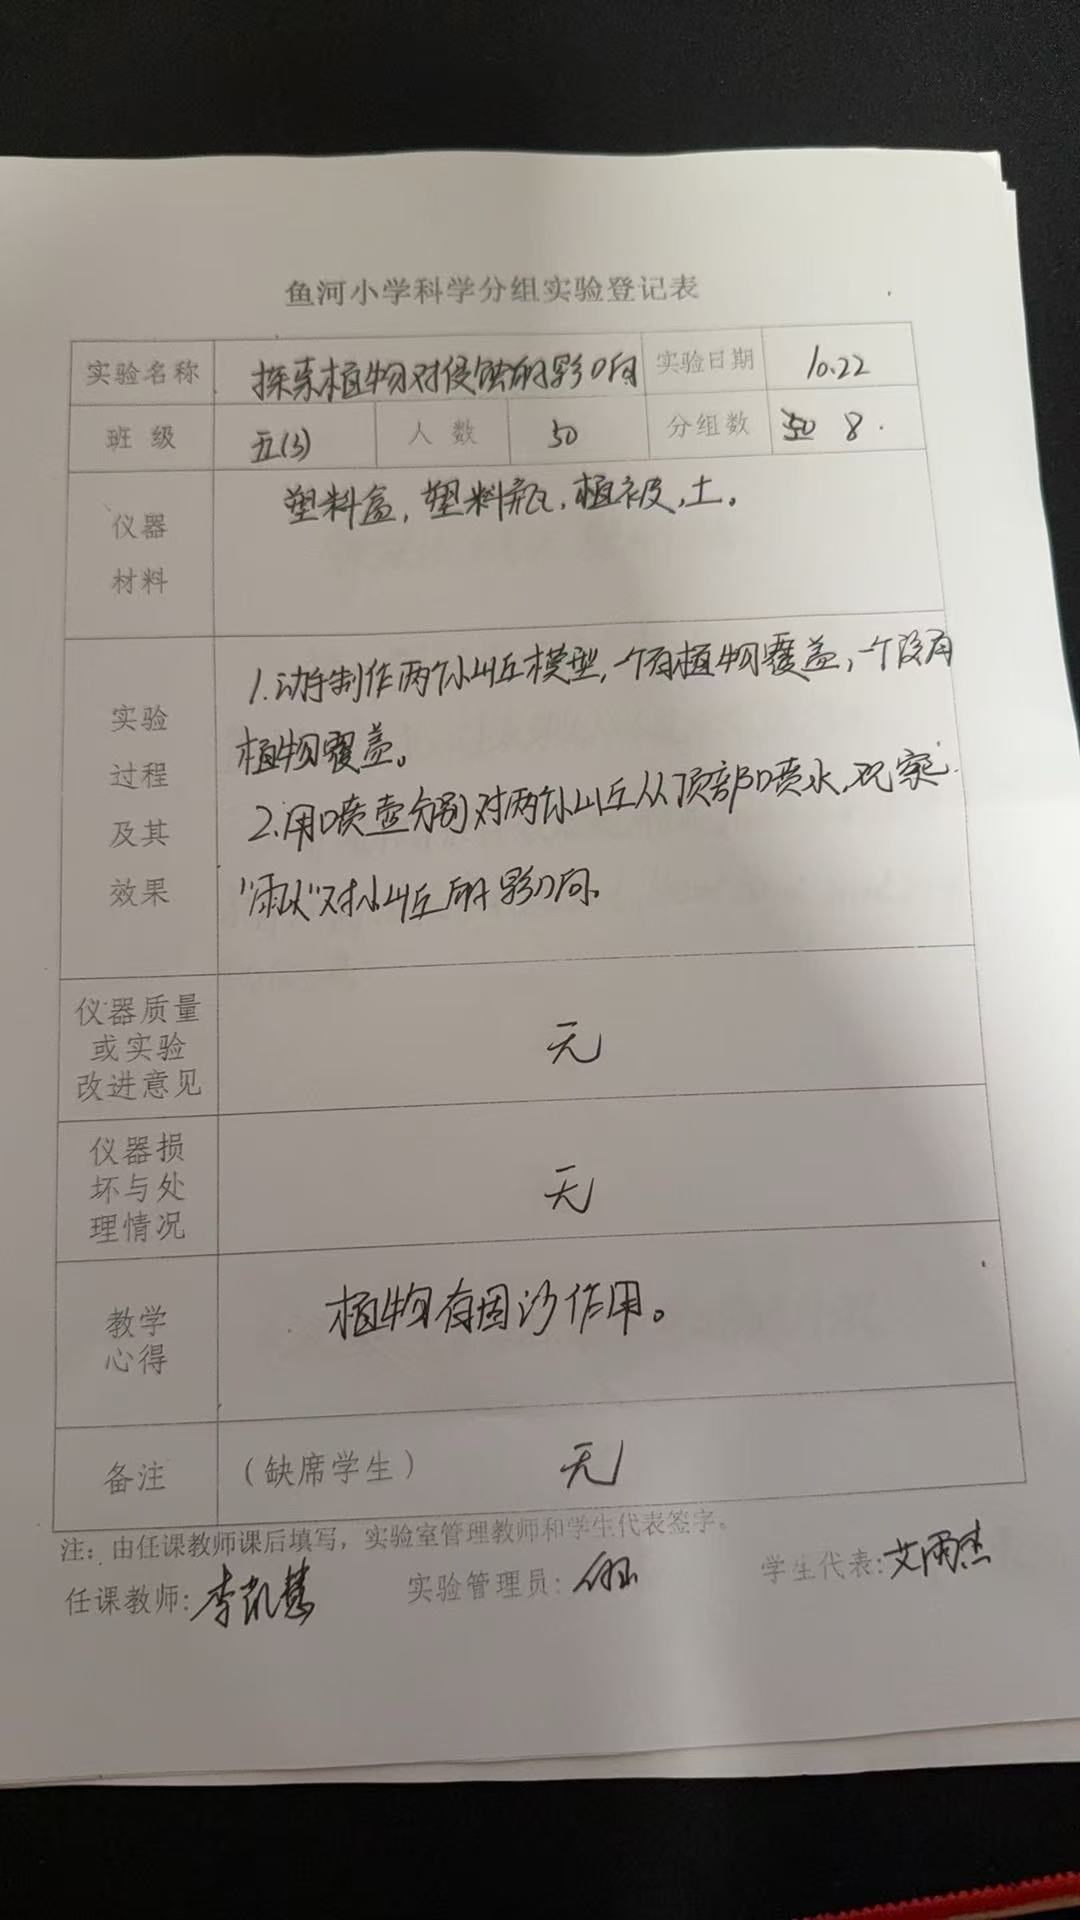 鱼河小学科学分组实验登记表
实验名称 探索植物对侵蚀的影响 实验日期 10.22
班级 五(3) 人数 50 分组数 50 8.
仪器材料 塑料盒,塑料瓶,植被,土。
实验过程及其效果
1.动手制作两个小山丘模型,一个有植物覆盖,一个没有
植物覆盖。
2.用喷壶分别对两个小山丘从顶部喷水,观察
"雨水"对小山丘的影响.
仪器质量或实验改进意见 无
仪器损坏与处理情况 无
教学心得 植物有固沙作用。
备注 (缺席学生) 无
注:由任课教师课后填写,实验室管理教师和学生代表签字。
任课教师:李凯慧 实验管理员: 学生代表:艾雨杰